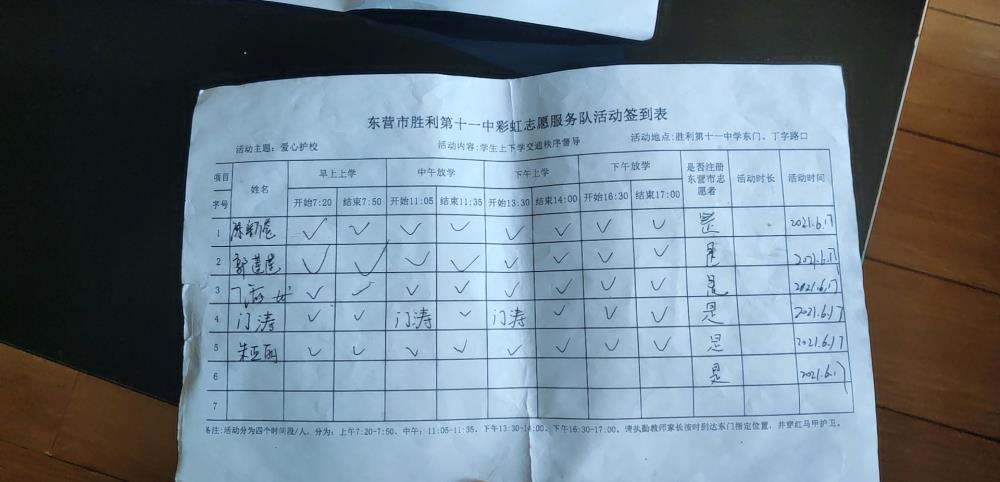 东营市胜利第十一中彩虹志愿服务队活动签到表
活动主题：爱心护校 活动内容:学生上下学交通秩序督导 活动地点:胜利第十一中学东门、丁字路口
项目 姓名 早上上学 中午放学 下午上学 下午放学 是否注册东营市志愿者 活动时长 活动时间
序号 开始7:20 结束7:50 开始11:05 结束11:35 开始13:30 结束14:00 开始16:30 结束17:00
1 ✓ ✓ ✓ ✓ ✓ ✓ ✓ ✓ 是 2021.6.17
2 ✓ ✓ ✓ ✓ ✓ ✓ ✓ ✓ 是 2021.6.17
3 ✓ ✓ ✓ ✓ ✓ ✓ ✓ ✓ 是 2021.6.17
4 门涛 ✓ ✓ 门涛 ✓ 门涛 ✓ ✓ ✓ 是 2021.6.17
5 朱亚丽 ✓ ✓ ✓ ✓ ✓ ✓ ✓ ✓ 是 2021.6.17
6 是 2021.6.17
7
备注:活动分为四个时间段/人，分为：上午7:20-7:50、中午：11:05-11:35、下午13:30-14:00、下午16:30-17:00。请执勤教师家长按时到达东门指定位置，并穿红马甲护卫。